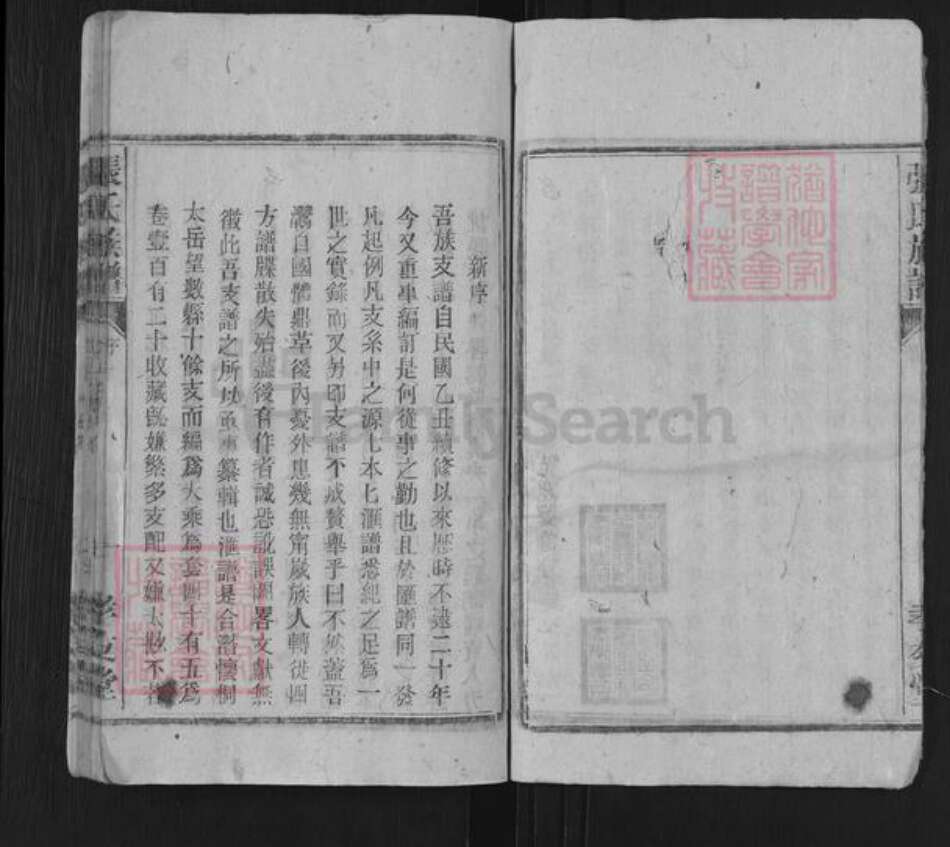 張氏族譜
猶他家
譜學會
特藏
新序
吾族支譜自民國乙丑續修以來厯時不遠二十年
今又重事編訂是何從事之勤也且於匯譜同一發
凡起例凡支系中之源匕本匕滙譜悉紀之足爲一
世之實錄而又另印支譜不成贅舉乎曰不然蓋吾
鸞自國體鼎革後內憂外患幾無甯嵗族人轉徙四
方譜牒散失殆盡後有作者誠恐訛誤闕畧文獻無
徵此吾支譜之所以亟事纂輯也滙譜是合潛懷桐
太岳望數縣十餘支而編爲大乘爲套四十有五爲
卷壹百有二十收藏旣嫌繁多支配又嫌太少不
張氏族譜
序
FamilySearch